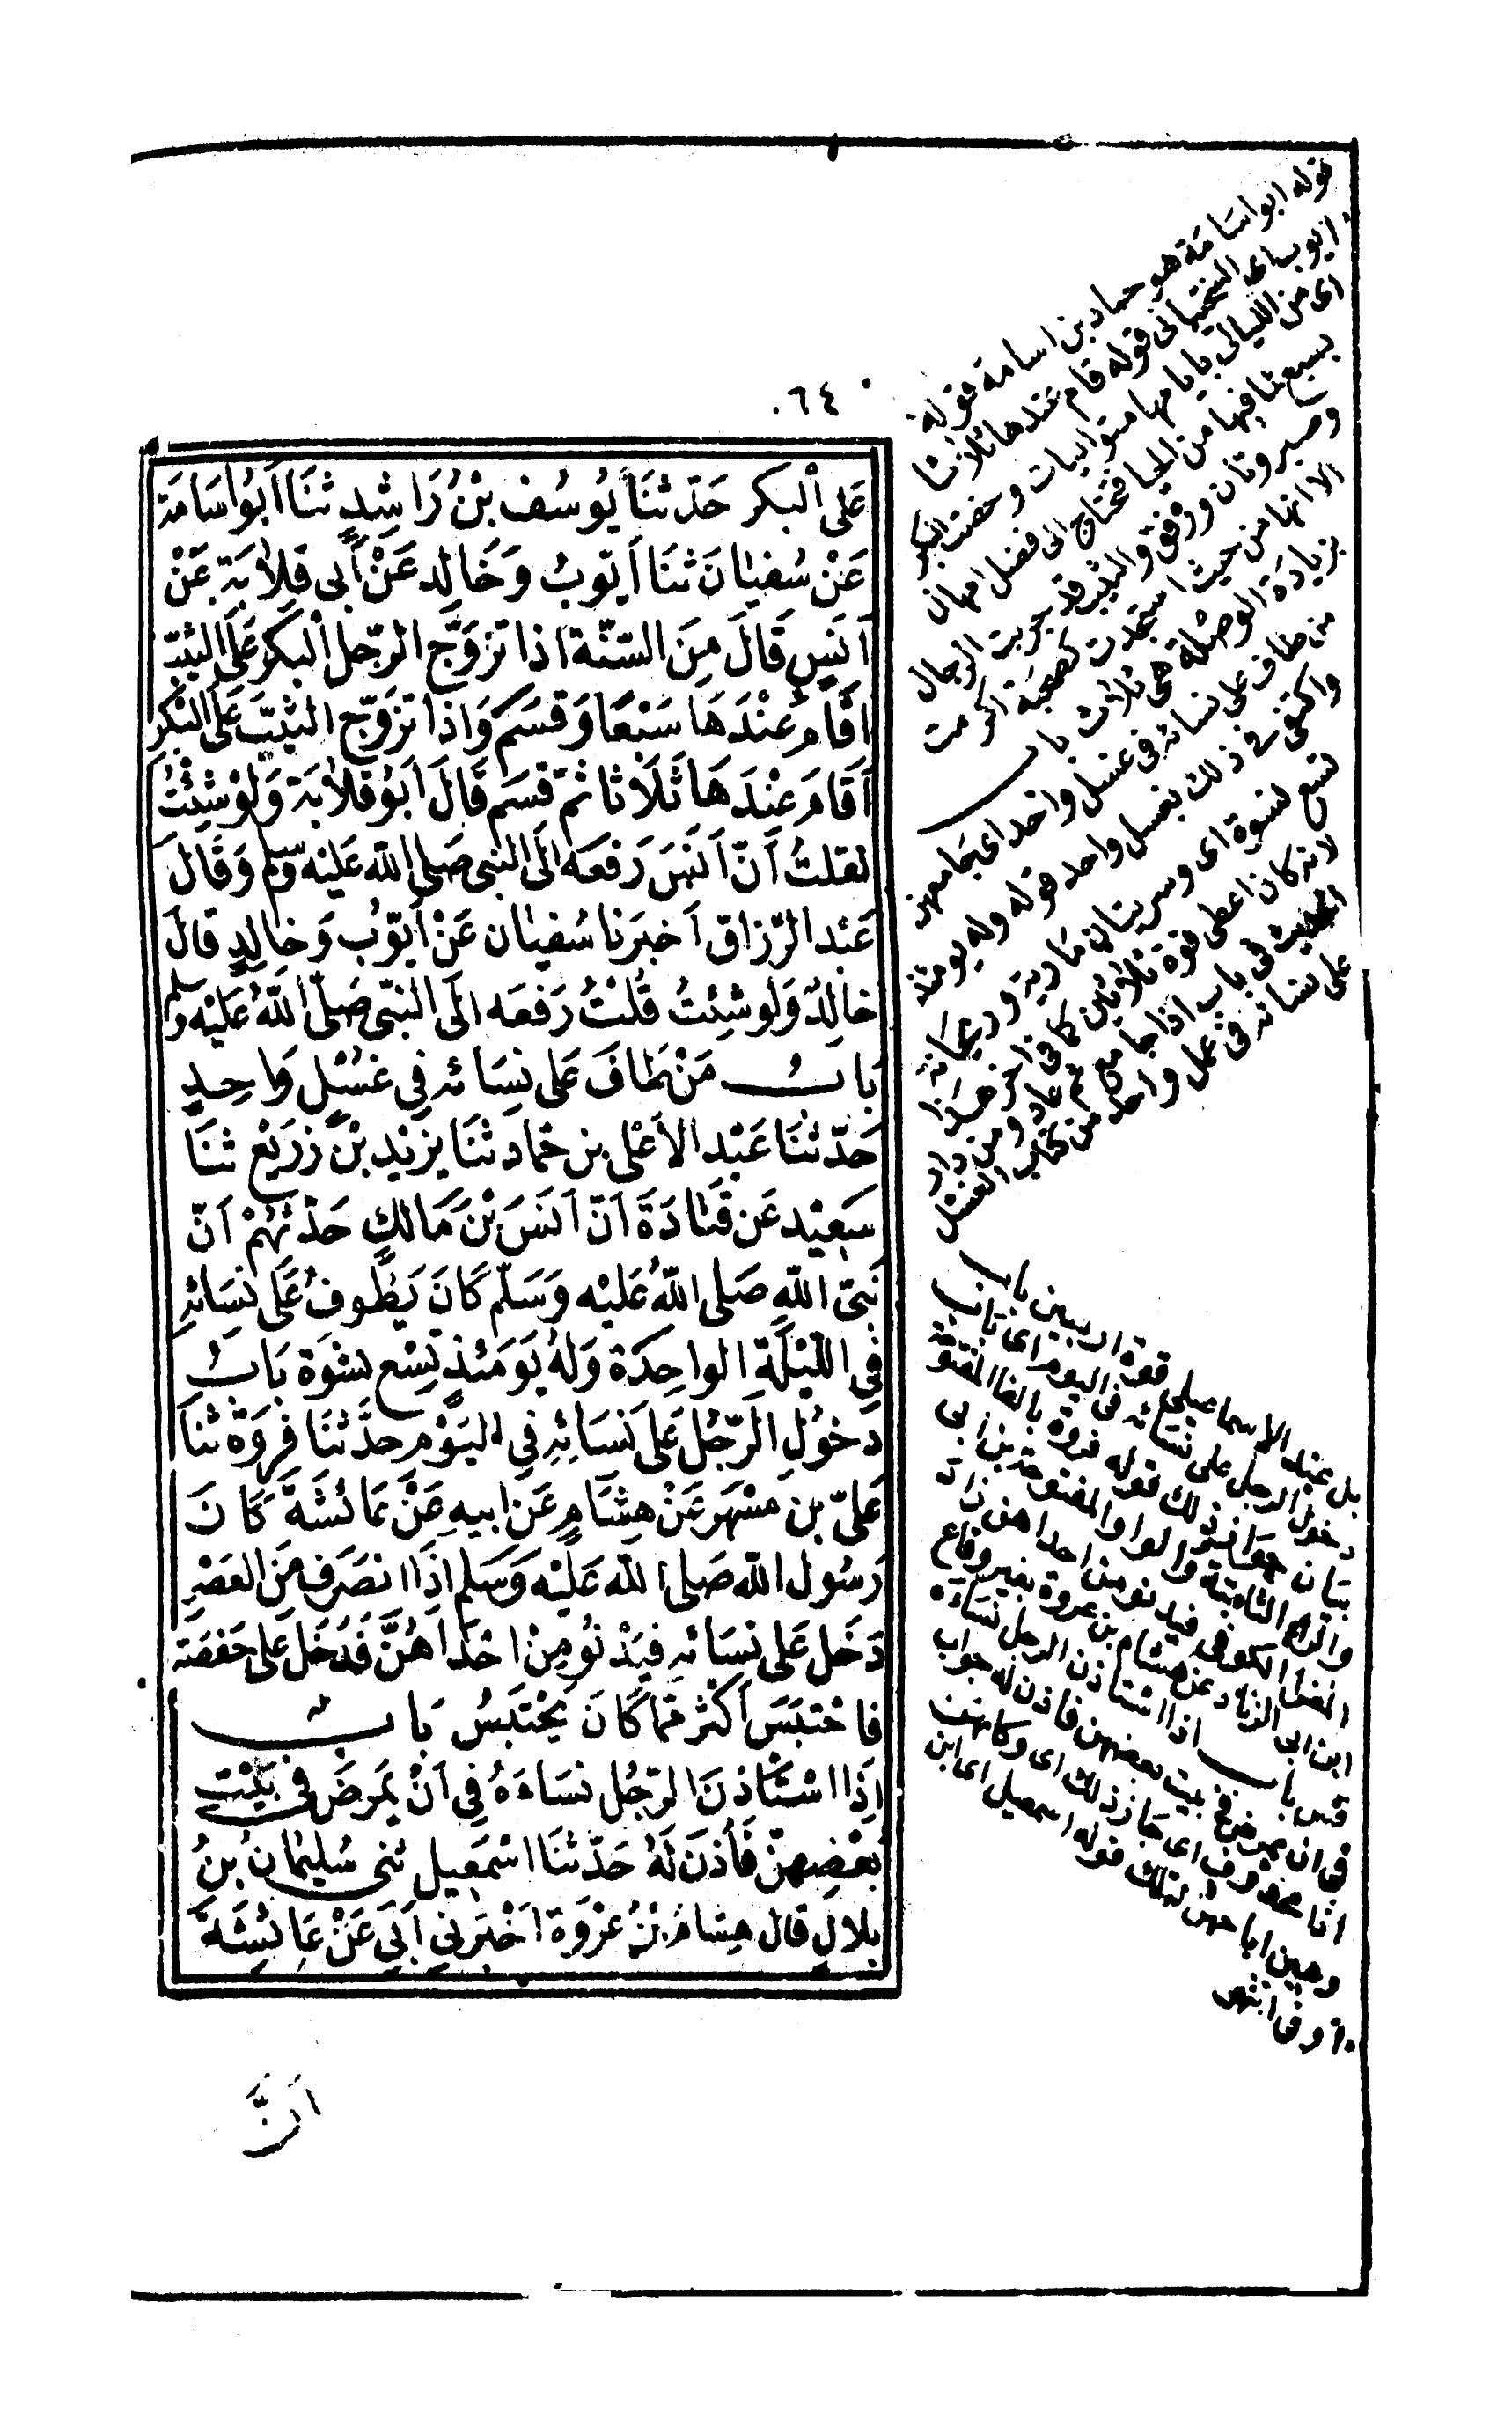 ٠٦٤
عَلَى اْلبكر حَدّثنَا يُوسُف بْنُ رَاشِدٍ ثنَا اَبُو اسَامَة
عَنْ سُفيٰانَ ثنَا اَيّوبُ وَخَالِد عَنْ اَبى قِلاٰبَةَ عَنْ
اَنَسٍ قَالَ مِنَ السّنّة اذا تزَوَّج الرّجل البكر عَلَى الثيّب
اَقَامَ عِنْدَهَا سَبْعًا وَقَسَمَ وَاذا تزوّج الثيّبَ عَلَى البكر
اَقَامَ عِنْدَهَا ثَلَاثا ثمّ قسَم قَالَ اَبُو قِلاٰبَة وَلوْ شِئْتُ
لقلتُ اَنّ اَنَسَ رَفعَه الَى النبى صَلى الله عَليْه وسلم وَقَالَ
عَبْد الرّزاق اَخبَرنا سُفيٰان عَنْ اَيّوب وَخالِدٍ قالَ
خالِدٌ وَلو شِئتُ قُلتُ رَفعَه الَى النّبّى صَلّى اللّهُ عَليْه وسلم
بَابُ مَنْ طَافَ عَلى نِسَائه فِى غسْلٍ وَاحِدٍ
حَدّثنَا عَبْد الاَعْلى بن حَماد ثنَا يزيْد بْنُ زرَيْع ثنَا
سَعِيْد عَن قتَادَةَ اَنّ اَنَسَ بْنَ مَالكٍ حَدّثهُمْ اَنّ
نَبىّ اللّهِ صَلى اللّهُ عَليْه وَسَلّم كَانَ يَطُوفُ عَلَى نسَائهِ
فِى اللّيْلَةِ الواحِدَة وَلهُ يَومَئذٍ تِسْع نسْوَة بَابُ
دخوُلِ الرّجُل عَلى نسَائهِ فِى اليَوْمِ حدّثنَا فروَة ثنا
عَلىّ بن مسْهَر عَنْ هِشَامٍ عَن ابيهِ عَنْ عَائشَةَ كَانَ
رَسُول الله صَلى الله عَليْه وَسَلم اِذَا انصَرَف مِنَ العَصْرِ
دَخَل عَلى نسَائهِ فيَدْنُو مِنْ احْدَاهُنَّ فَدَخَل عَلى حَفصَة
فاحْتبَسَ اَكثر ممّا كَانَ يَحْتَبِسُ بَابُ
اِذَا اسْتَاْذنَ الرّجُل نسَاءَهُ فِى اَنْ يمَرضَ فى بَيْتِ
بَعْضِهنّ فَاَذنّ لَهُ حَدّثنَا اسْمٰعِيل ثنى سُليمَان بنُ
بلَالٍ قال هِشامُ بْنُ عرْوَة اَخْبَرنى اَبى عَنْ عَائشَةَ
اَنَّ
قوله ابو اسَامَة هو حماد بن اسامة قوله
ايوب اى السختيانى قوله قام عندها ثلاثا
اى من الليالى بايامها متواليات وخصت البكر
بسبع لما فيها من الحيا فتحتاج الى فضل امهال
وصبر وتان ورفق والثيب قد جربت الرجال
الا انها من حيث استجدت الصحبة اكرمت
بزيادة الوصلة هى ثلاث باب
من طاف على نسائه فى غسل واحد اى جامعهن
واكتفى فى ذلك بغسل واحد قوله وله يومئذ
تسع نسوة اى وسريتان مارية وريحانة
لانه كان اعطى قوة ثلاثين كما فى
الحديث فى باب اذا جامع ثم عاد ومن دار
على نسائه فى غسل واحد من كتاب الغسل
بل عند الاسماعيلى قوة اربعين باب
دخول الرجل على نسائه فى اليوم اى باب
بيان جواز ذلك قوله فروة بالفا المفتوحة
والراء الثانية والواو المفتوحة بن ابى
المغرا الكوفى فيدنو من احداهن زاد
ابن ابى الزناد عن هشام بن عروة بغير وقاع
قس باب اذا استاذن الرجل نساءه
فى ان يمرض فى بيت بعضهن فاذن له جواب
اذا محذوف اى جاز ذلك اى
قوله اسمعيل اى ابن
انتهى